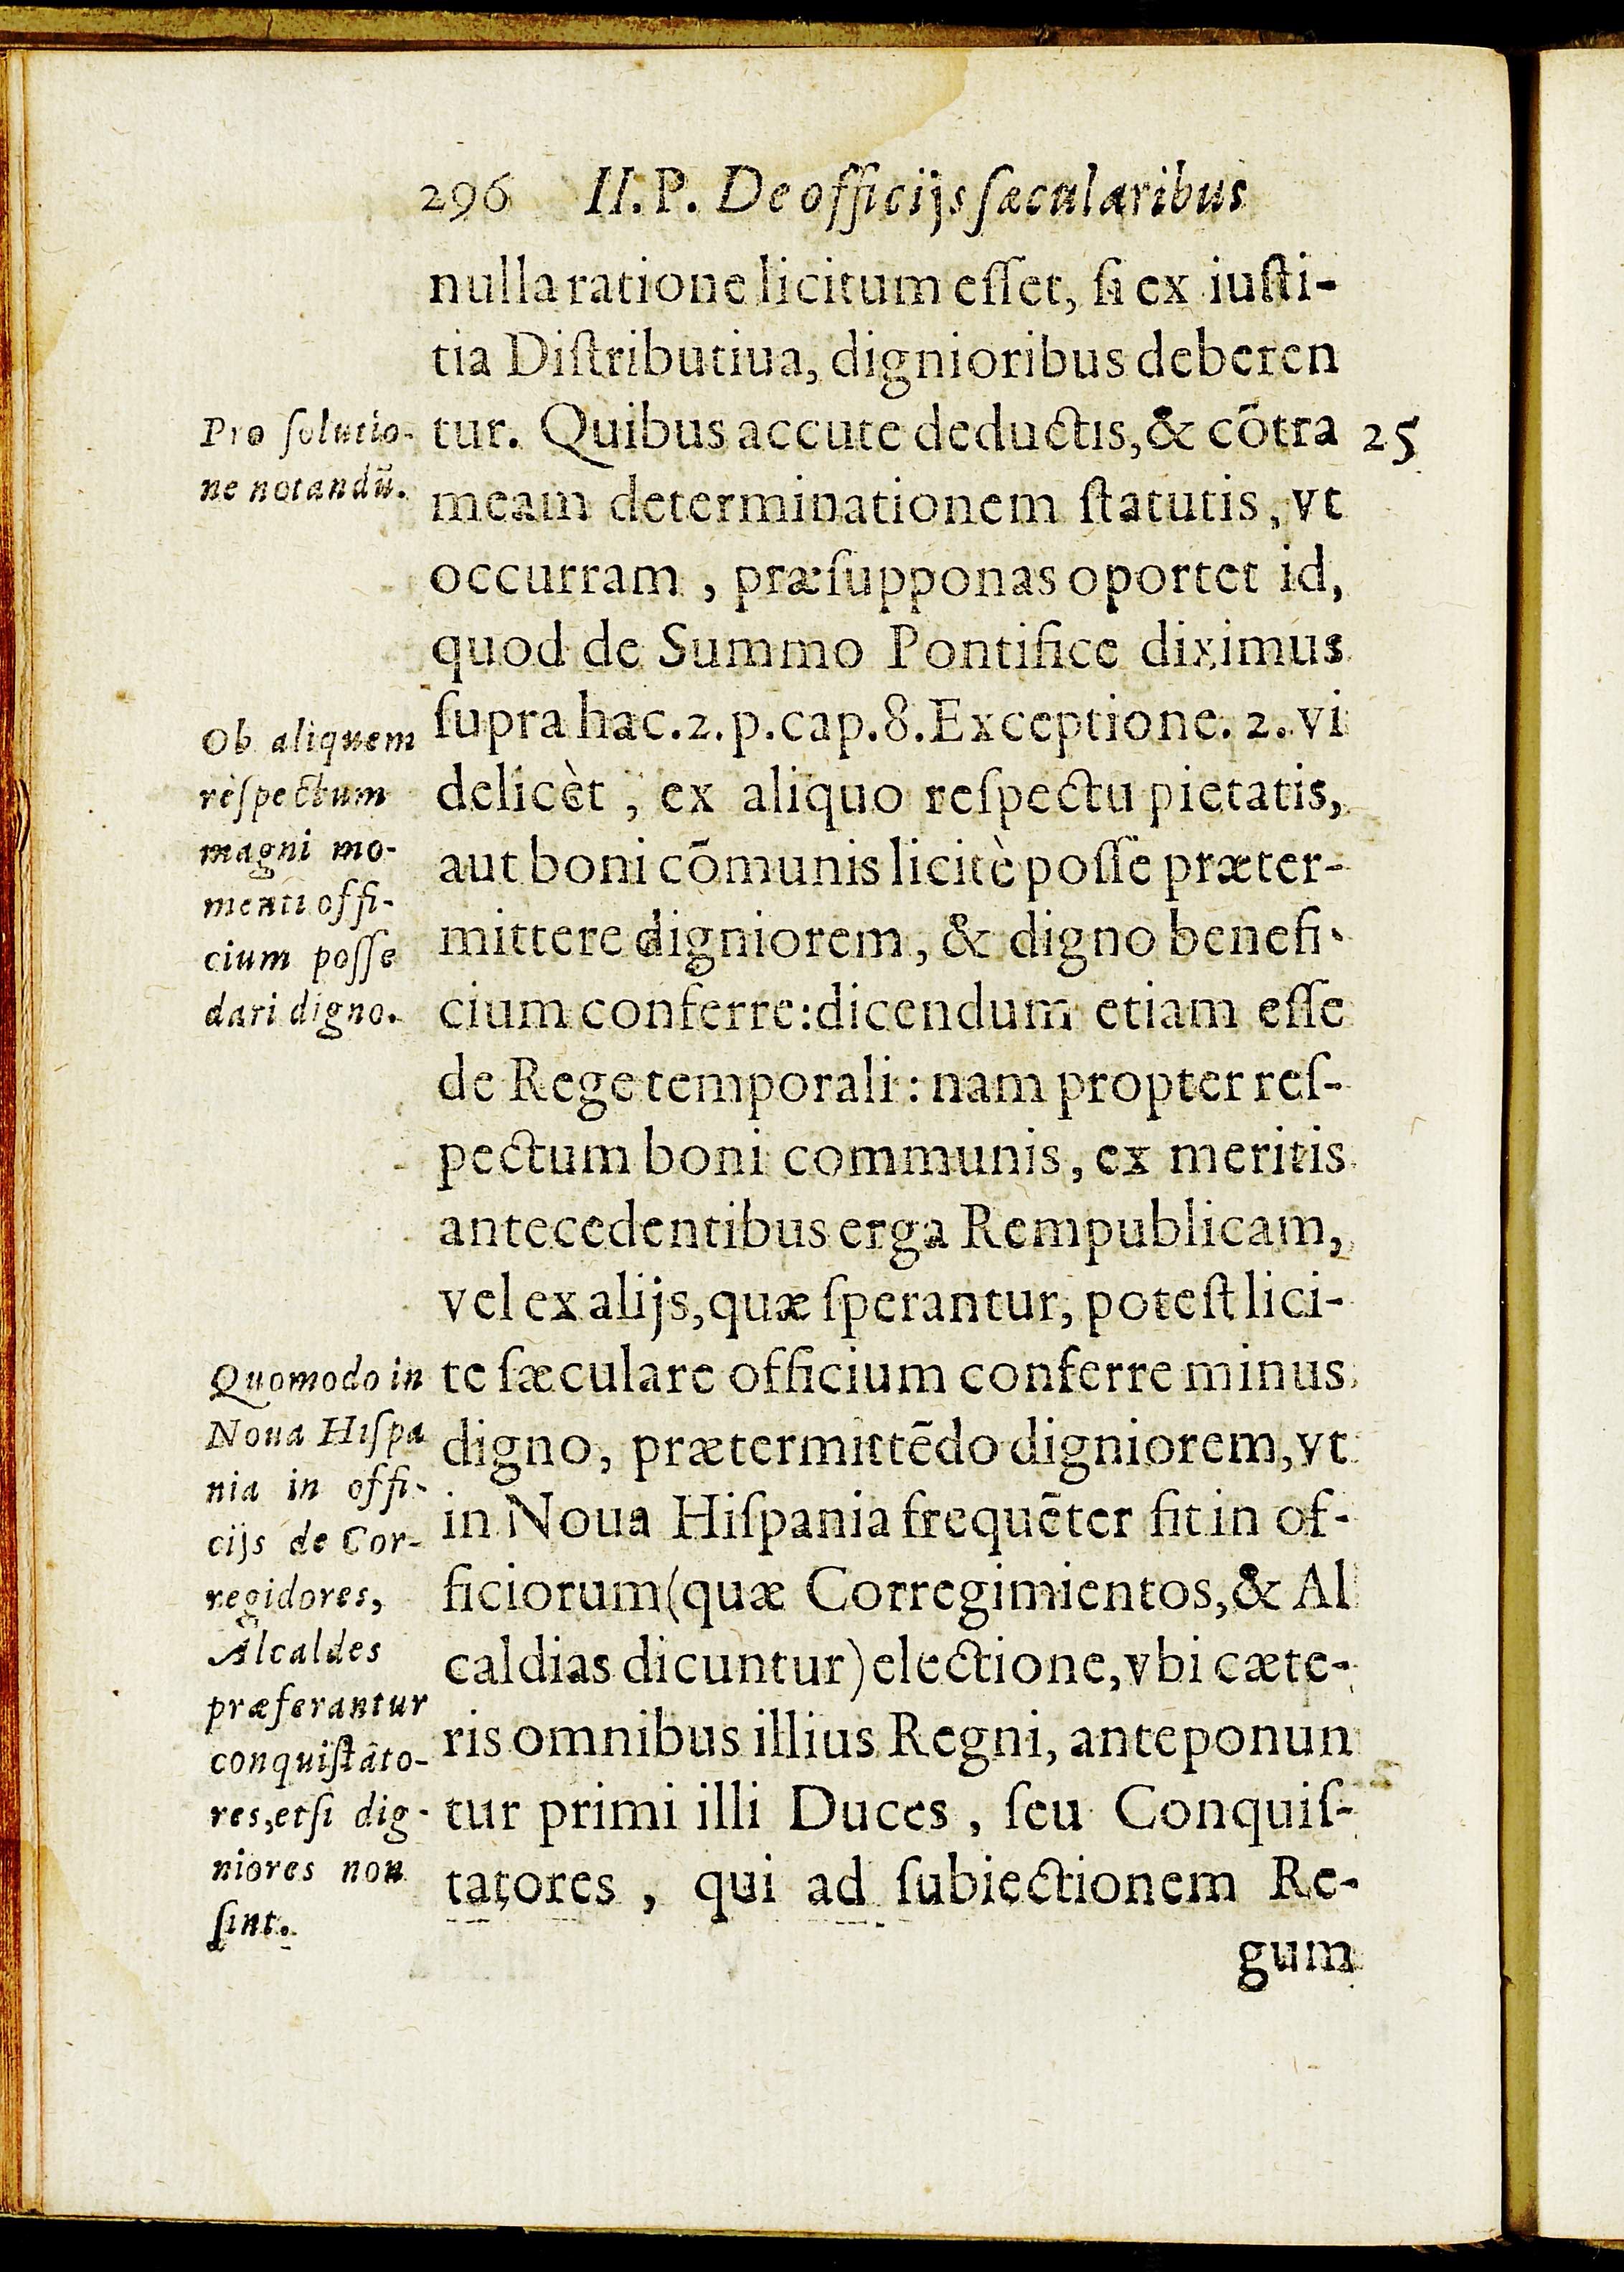 296 II. P. De officijs sæcularibus
nulla ratione licitum eſſet, ſi ex iuſti-
tia Diſtributiua, dignioribus deberen
tur. Quibus accute deductis, & cōtra 25
meam determinationem ſtatutis, vt
occurram, præſupponas oportet id,
quod de Summo Pontifice diximus
ſupra hac. 2. p. cap. 8. Exceptione. 2. vi
delicèt, ex aliquo reſpectu pietatis,
aut boni cōmunis licitè poſſe præter-
mittere digniorem, & digno benefi-
cium conferre: dicendum etiam eſſe
de Rege temporali: nam propter reſ-
pectum boni communis, ex meritis
antecedentibus erga Rempublicam,
vel ex alijs, quæ ſperantur, poteſt lici-
te ſæculare officium conferre minus
digno, prætermittēdo digniorem, vt
in Noua Hiſpania frequēter fit in of-
ficiorum (quæ Corregimientos, & Al
caldias dicuntur) electione, vbi cæte-
ris omnibus illius Regni, anteponun
tur primi illi Duces, ſeu Conquiſ-
tatores, qui ad ſubiectionem Re-
gum
Pro ſolutio-
ne notandū.
Ob aliquem
reſpectum
magni mo-
menti offi-
cium poſſe
dari digno.
Quomodo in
Noua Hiſpa
nia in offi-
cijs de Cor-
regidores,
Alcaldes
præferantur
conquiſtato-
res, etſi dig-
niores non
ſint.